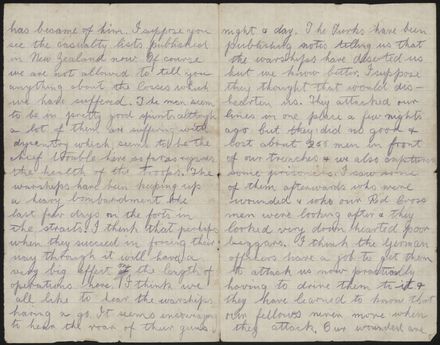 has became of him. I suppose you
see the casualty lists published
in New Zealand now. Of course
we are not allowed to tell you
anything about the losses which
we have suffered. The men seem
to be in pretty good spirits although
a lot of them are suffering with
dysentry which seems to be the
chief trouble here as far as regards
the health of the Troops. The
warships have been keeping up
a heavy bombardment the
last few days on the forts in
the straits. I think that perhaps
when they succeed in forcing their
way through it will have a
very big effect on the length of
operations here. I think we
all like to hear the warships
having a go. It seems encouraging
to hear the roar of their guns
night & day. The Turks have been
publishing notes telling us that
the warships have deserted us
but we know better. I suppose
they thought that would dis-
hearten us. They attacked our
lines in one place a few nights
ago but they did no good &
lost about 250 men in front
of our trenches & we also captured
some prisoners. I saw some
of them afterwards who were
wounded & who our Red Cross
men were looking after & they
looked very down hearted poor
beggars. I think the German
officers have a job to get them
to attack us now practically
having to drive them to it &
they have learned to know that
our fellows never move when
they attack. Our wounded are